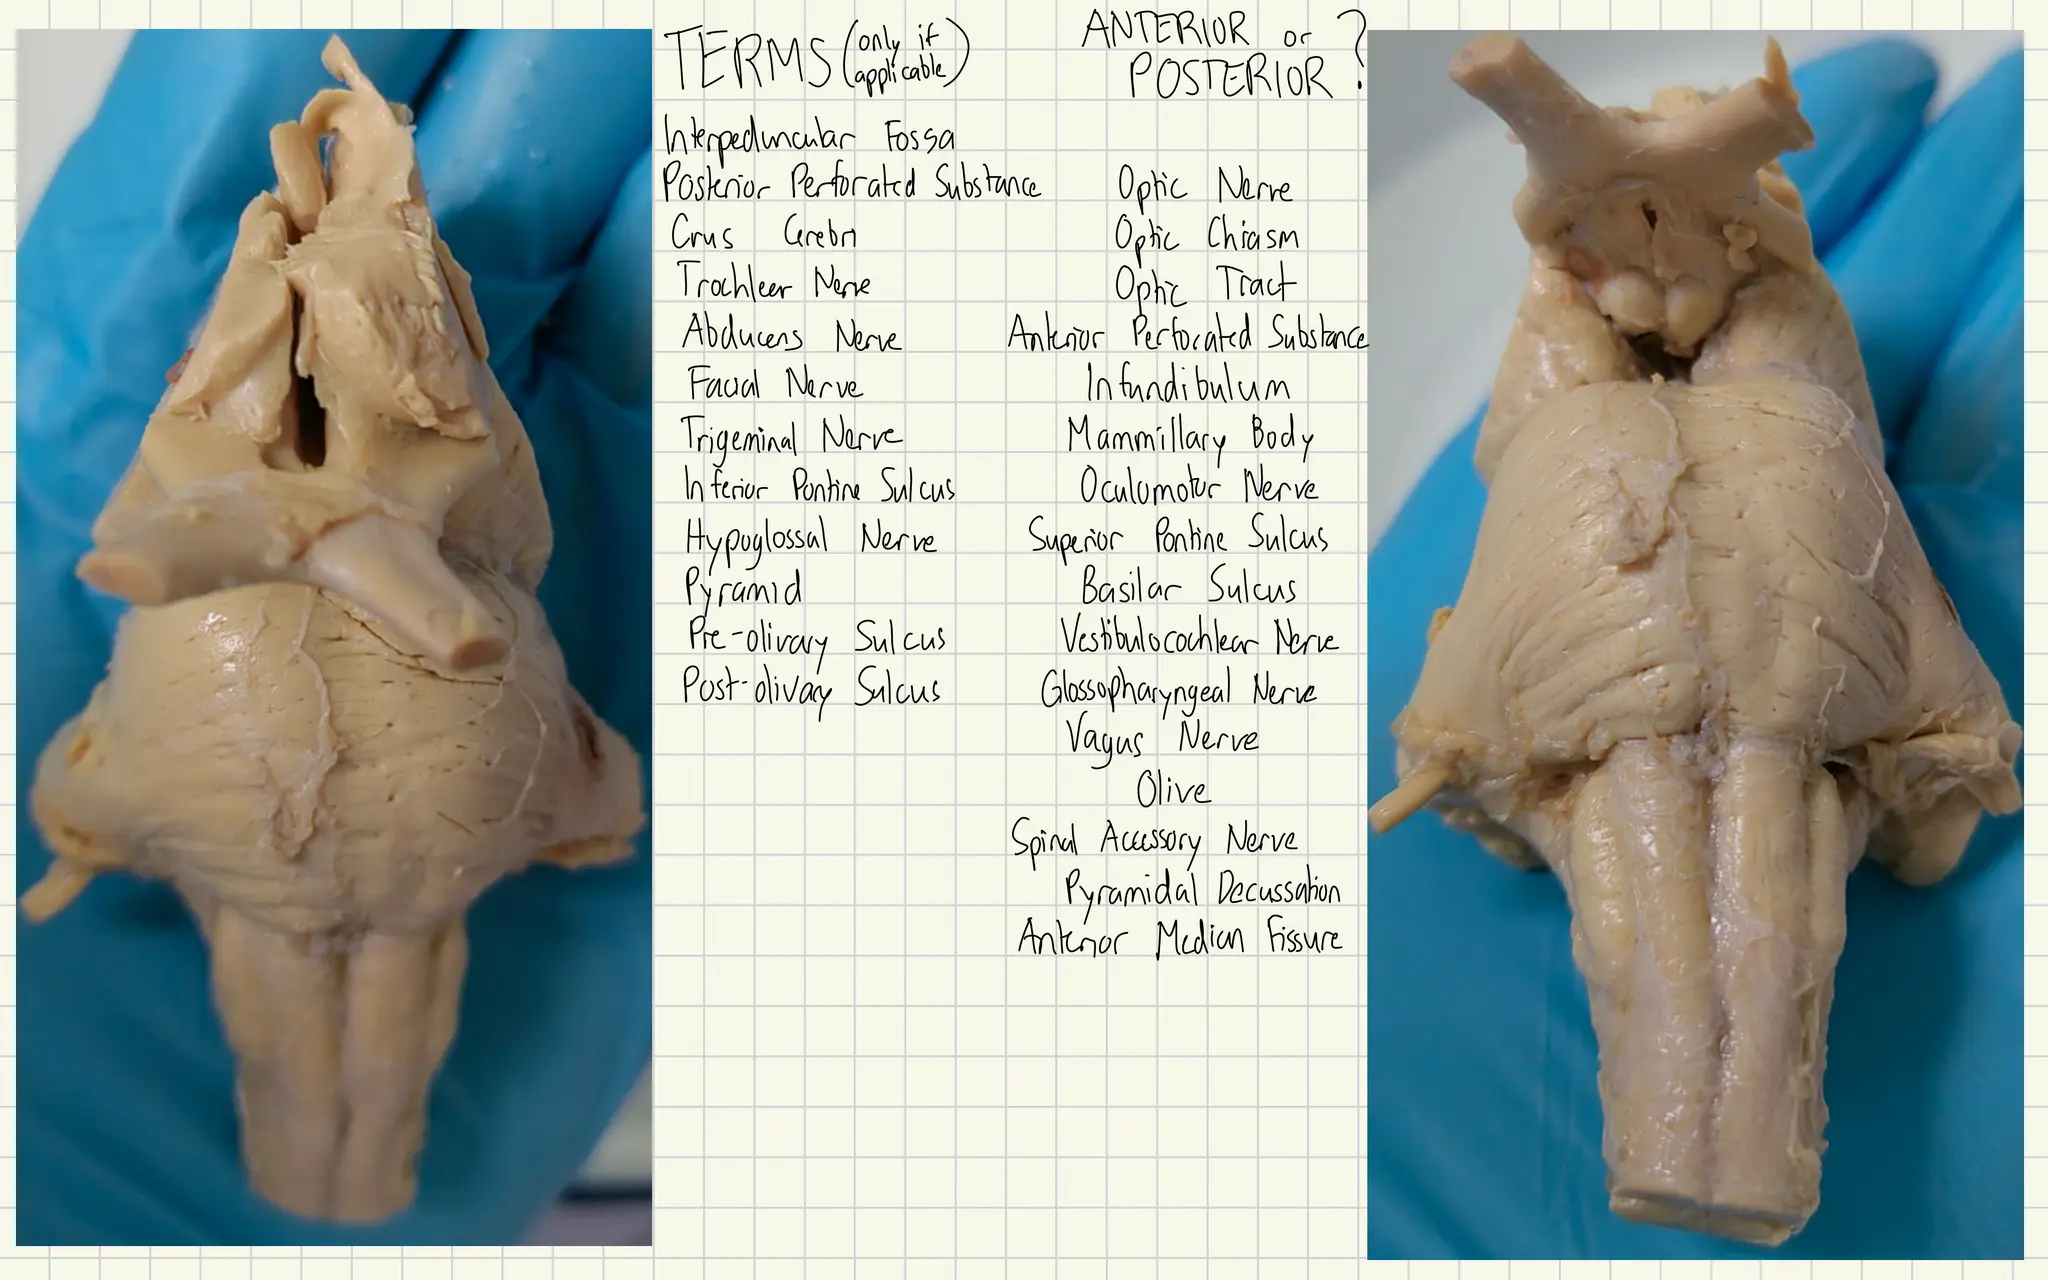 TERMS (only if applicable)
ANTERIOR or POSTERIOR ?
Interpeduncular Fossa
Posterior Perforated Substance
Crus Cerebri
Trochlear Nerve
Abducens Nerve
Facial Nerve
Trigeminal Nerve
Inferior Pontine Sulcus
Hypoglossal Nerve
Pyramid
Pre-olivary Sulcus
Post-olivary Sulcus
Optic Nerve
Optic Chiasm
Optic Tract
Anterior Perforated Substance
Infundibulum
Mammillary Body
Oculomotor Nerve
Superior Pontine Sulcus
Basilar Sulcus
Vestibulocochlear Nerve
Glossopharyngeal Nerve
Vagus Nerve
Olive
Spinal Accessory Nerve
Pyramidal Decussation
Anterior Median Fissure